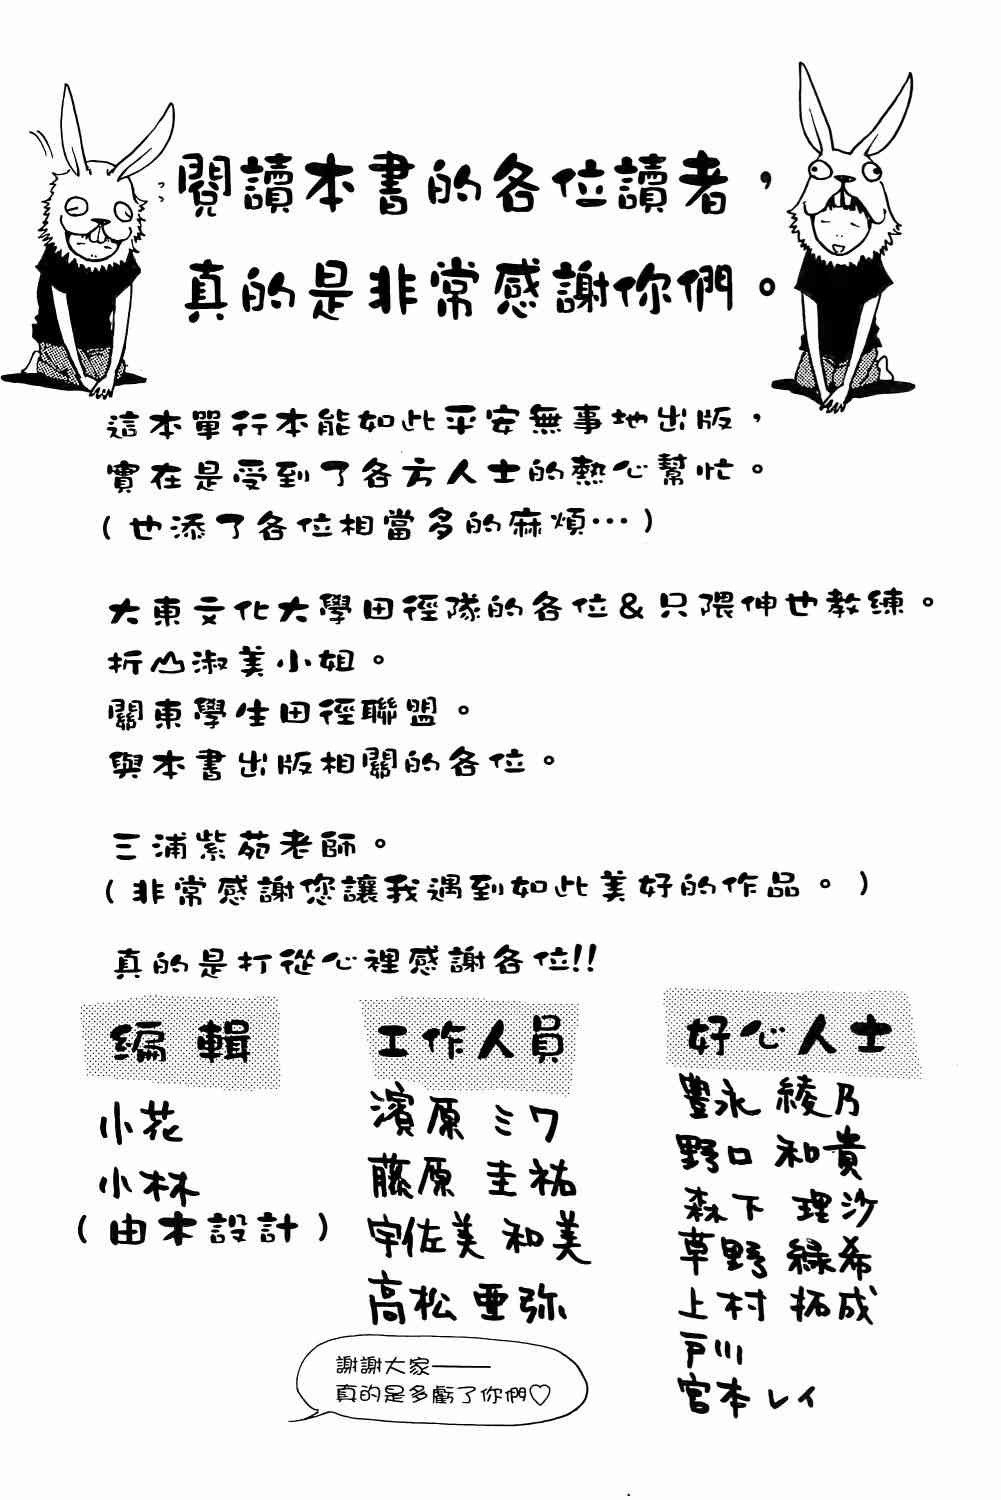 閱讀本書的各位讀者，
真的是非常感謝你們。
這本單行本能如此平安無事地出版，
實在是受到了各方人士的熱心幫忙。
（也添了各位相當多的麻煩…）
大東文化大學田徑隊的各位＆只隈伸也教練。
折山淑美小姐。
關東學生田徑聯盟。
與本書出版相關的各位。
三浦紫苑老師。
（非常感謝您讓我遇到如此美好的作品。）
真的是打從心裡感謝各位!!
編輯
小花
小林
（由本設計）
工作人員
濱原 ミワ
藤原 圭祐
宇佐美 和美
高松 亜弥
好心人士
豊永 綾乃
野口 和貴
森下 理沙
草野 緑希
上村 拓成
戸川
宮本 レイ
謝謝大家———
真的是多虧了你們♡